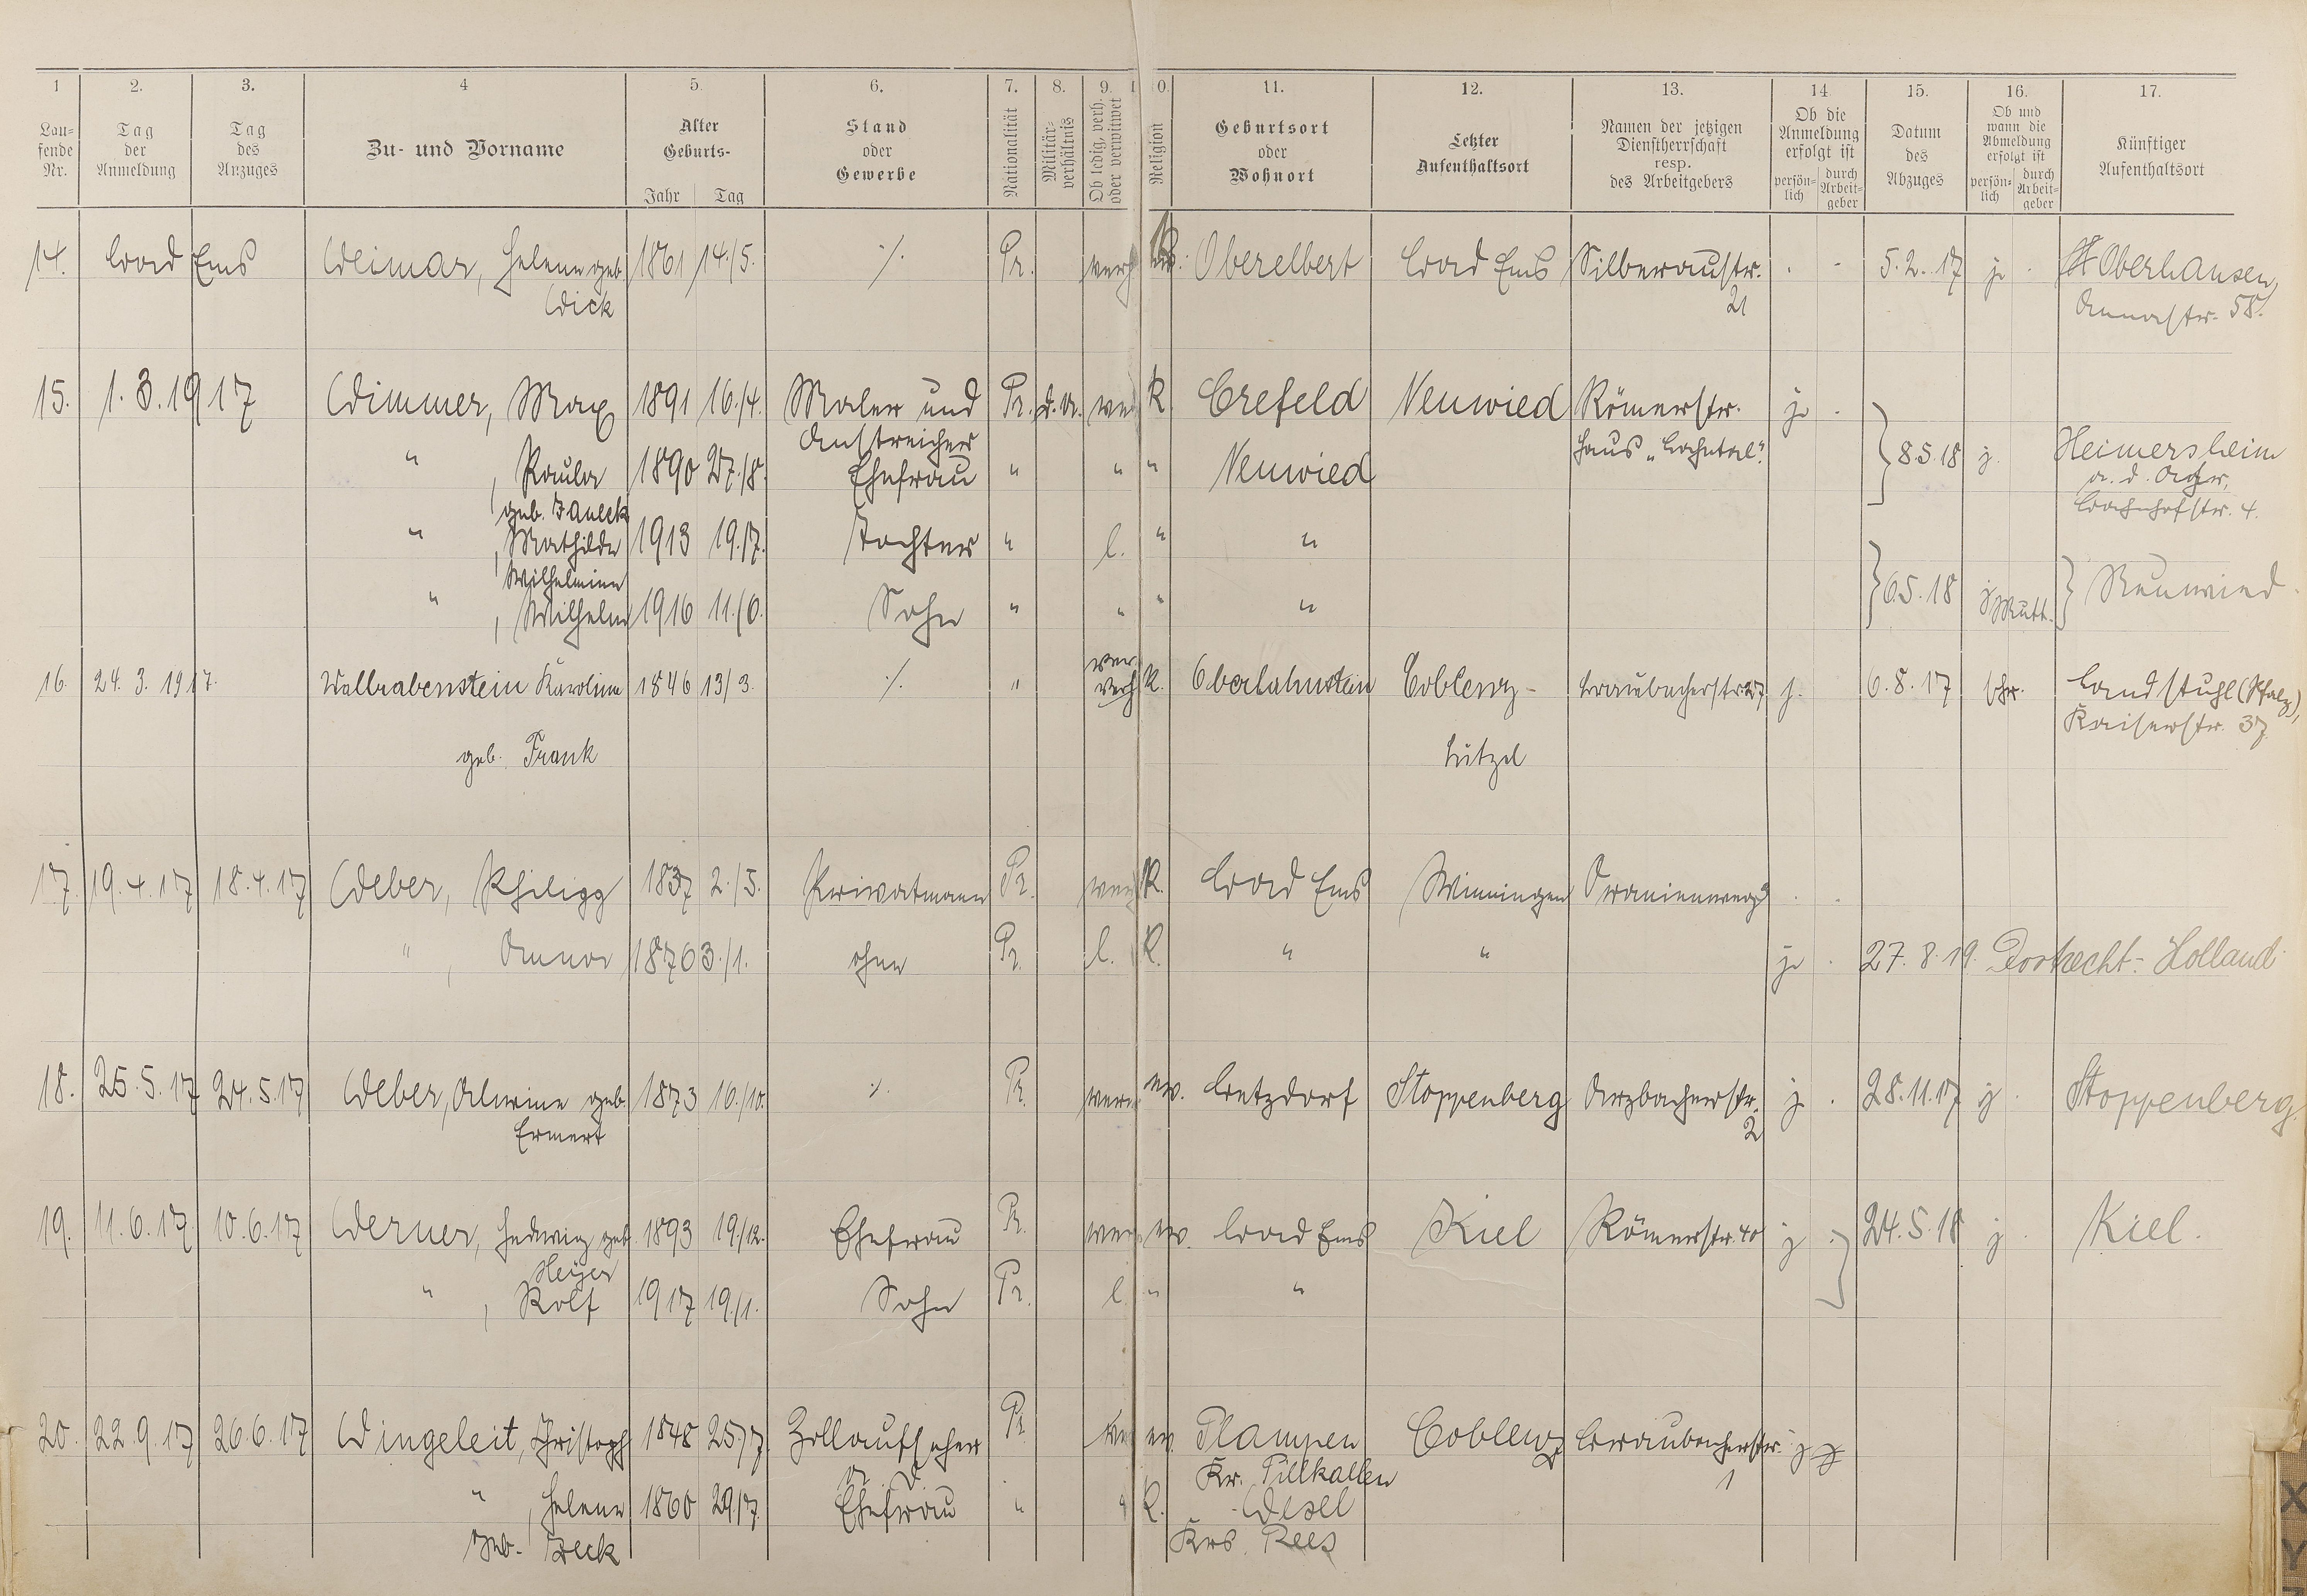 1 2. 3. 4 5. 6. 7. 8. 9. 10. 11. 12. 13. 14 15. 16. 17.
Lau-
fende
Nr.
Tag
der
Anmeldung
Tag
des
Anzuges
Zu- und Vorname
Alter
Geburts-
Jahr Tag
Stand
oder
Gewerbe
Nationalität
Militär-
verhältnis
Ob ledig, verh.
oder verwitwet
Religion
Geburtsort
oder
Wohnort
Letzter
Aufenthaltsort
Namen der jetzigen
Dienstherrschaft
resp.
des Arbeitgebers
Ob die
Anmeldung
erfolgt ist
persön-
lich
durch
Arbeit-
geber
Datum
des
Abzuges
Ob und
wann die
Abmeldung
erfolgt ist
persön-
lich
durch
Arbeit-
geber
Künftiger
Aufenthaltsort
14. Bad Ems Weimar, Helene geb. 1861 14./5. ./. Pr. verh. Oberelbert Bad Ems Silberaustr. 5.2.17 ja Oberhausen,
Dick 21 Annastr. 58.
15. 1.3.1917 Wimmer, Max 1891 16./4. Maler und Pr. d.U. ver K. Crefeld Neuwied Römerstr. ja
Anstreicher Haus "Lahntal".
" , Paula 1890 27./8. Ehefrau " " " Neuwied } 8.5.18 j. Heimersheim
geb. Janeck a. d. Ahr,
Bahnhofstr. 4.
" , Mathilde 1913 19./7. Tochter " l. " "
Wilhelmine
" , Wilhelm 1916 11./6. Sohn " " " " } 6.5.18 Mutt. } Neuwied.
16. 24.3.1917. Wallrabenstein Karoline 1846 13/3. ./. " verh K. Oberlahnstein Coblenz- Braubacherstr. 27 j. 6.8.17 schr. Landstuhl (Pfalz),
geb. Frank Lützel Kaiserstr. 37
17. 19.4.17 18.4.17 Weber, Philipp 1837 2./5. Privatmann Pr. K. Bad Ems Winningen Oranienweg 3
" , Anna 1876 3./1. ohne Pr. l. K. " " ja 27.8.19. Dortrecht-Holland.
18. 25.5.17 24.5.17 Weber, Alwine geb. 1873 16./10. ./. Pr. verh ev. Betzdorf Stoppenberg Arzbacherstr. j. 28.11.17 j. Stoppenberg.
Ermert 2
19. 11.6.17 10.6.17 Werner, Hedwig geb. 1893 19./12. Ehefrau Pr. ver ev. Bad Ems Kiel Römerstr. 40 j. } 24.5.18 j. Kiel.
Heyer
" , Rolf 1917 19./1. Sohn Pr. l. " "
20. 22.9.17 26.6.17 Wingeleit, Christoph 1848 25./7. Zollaufseher Pr. ve ev. Plampen Coblenz Braubacherstr. j
a. D. Kr. Pillkallen 1
" , Helene 1860 29./7. Ehefrau " " K. Wesel
geb. Zeck Krs. Rees